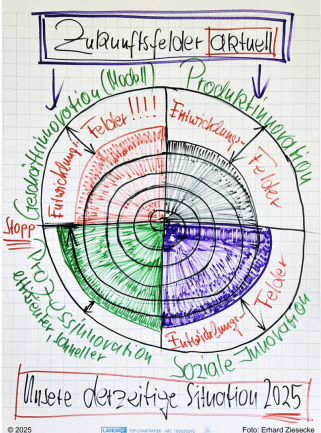 Zukunftsfelder aktuell
Geschäftsinnovation (Modell)
Produktinnovation
Entwicklungs-
Felder !!!!
Entwicklungs-
Felder
Stopp
Prozessinnovation
effizienter, schneller
Entwicklungs-
Felder
Soziale Innovation
Unsere derzeitige Situation 2025
© 2025
LANDRÉ
Foto: Erhard Ziesecke